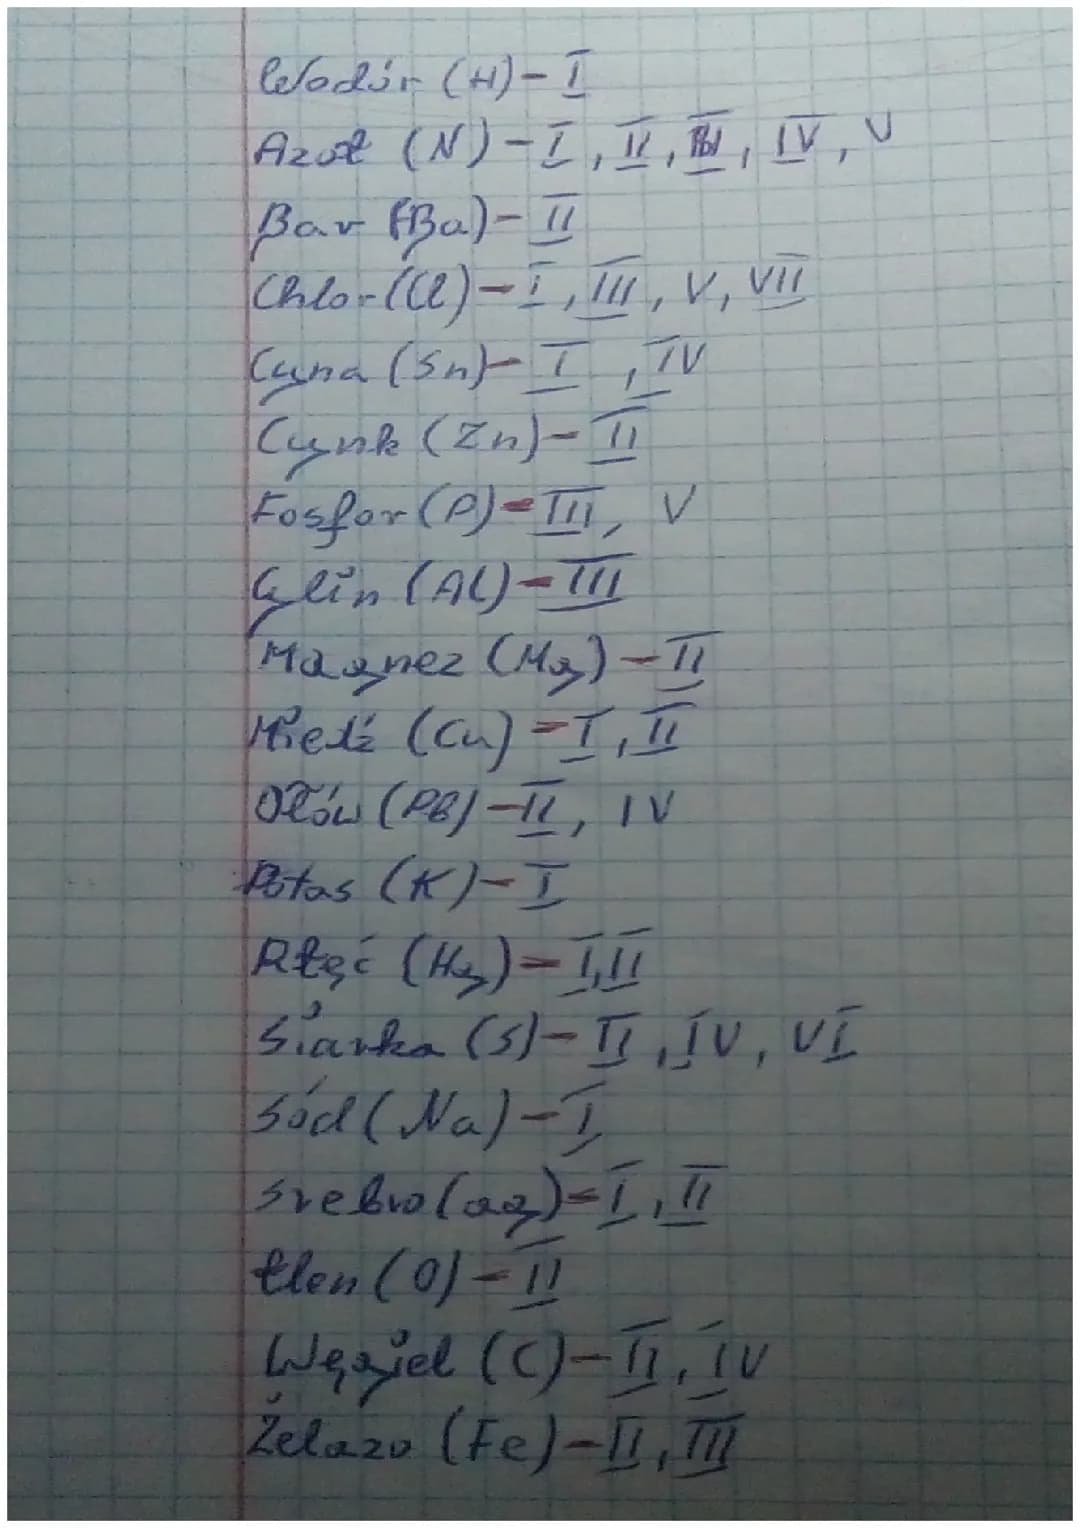 Wodór (H) - I
Azot (N) - I, II, III, IV, V
Bar (Ba) - II
Chlor (Cl) - I, III, V, VII
Cyna (Sn) - I, IV
Cynk (Zn) - II
Fosfor (P) - III, V
Glin (Al) - III
Magnez (Mg) - II
Miedź (Cu) - I, II
Ołów (Pb) - II, IV
Potas (K) - I
Rtęć (Hg) - I, II
Siarka (S) - II, IV, VI
Sód (Na) - I
Srebro (ag) - I, II
tlen (O) - II
Węgiel (C) - II, IV
Żelazo (Fe) - II, III